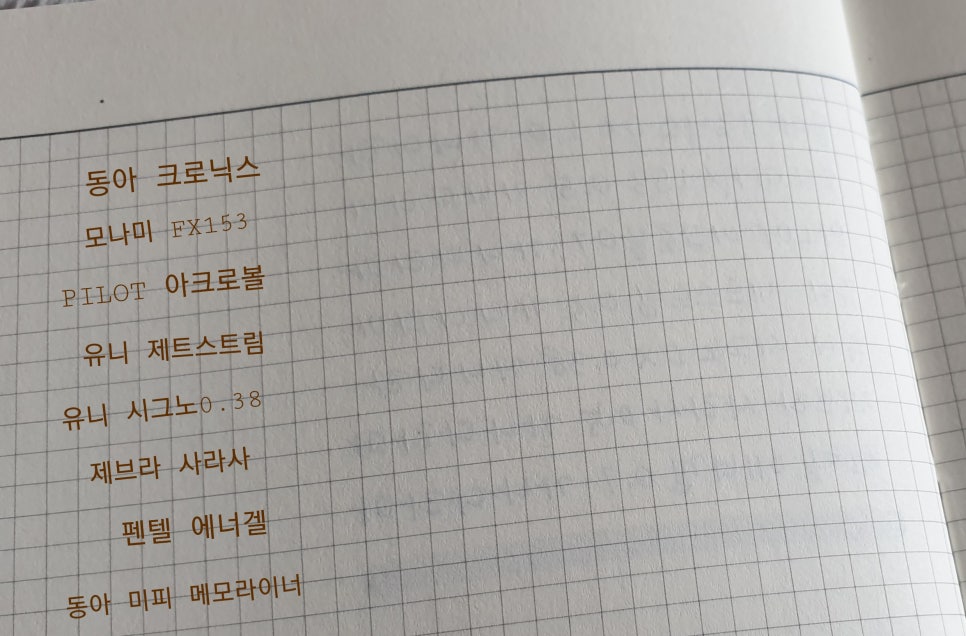 동아 크로닉스
모나미 FX153
PILOT 아크로볼
유니 제트스트림
유니 시그노0.38
제브라 사라사
펜텔 에너겔
동아 미피 메모라이너